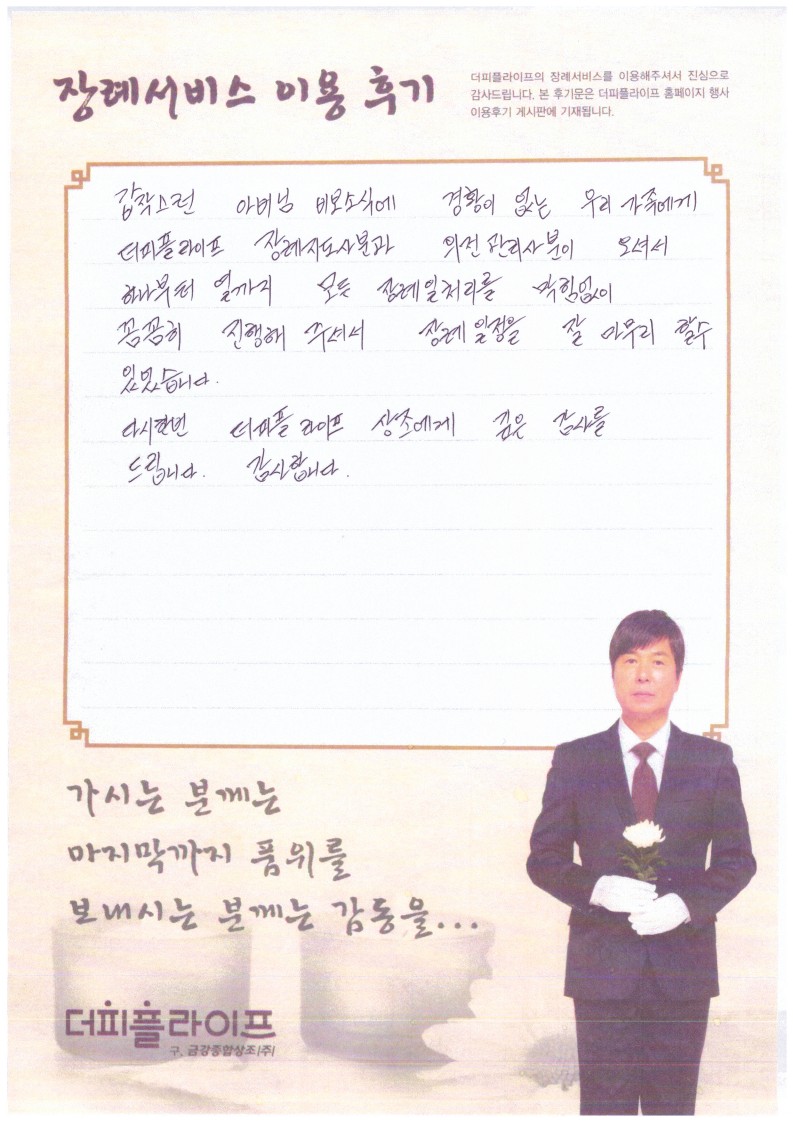 장례서비스 이용 후기
더피플라이프의 장례서비스를 이용해주셔서 진심으로
감사드립니다. 본 후기문은 더피플라이프 홈페이지 행사
이용후기 게시판에 기재됩니다.
갑작스런 아버님 비보소식에 경황이 없는 우리 가족에게
더피플라이프 장례지도사분과 의전관리사분이 오셔서
하나부터 열까지 모든 장례일처리를 막힘없이
꼼꼼히 진행해 주셔서 장례일정을 잘 마무리 할수
있었습니다.
다시한번 더피플라이프 상조에게 깊은 감사를
드립니다. 감사합니다.
가시는 분께는
마지막까지 품위를
보내시는 분께는 감동을...
더피플라이프
구. 금강종합상조(주)